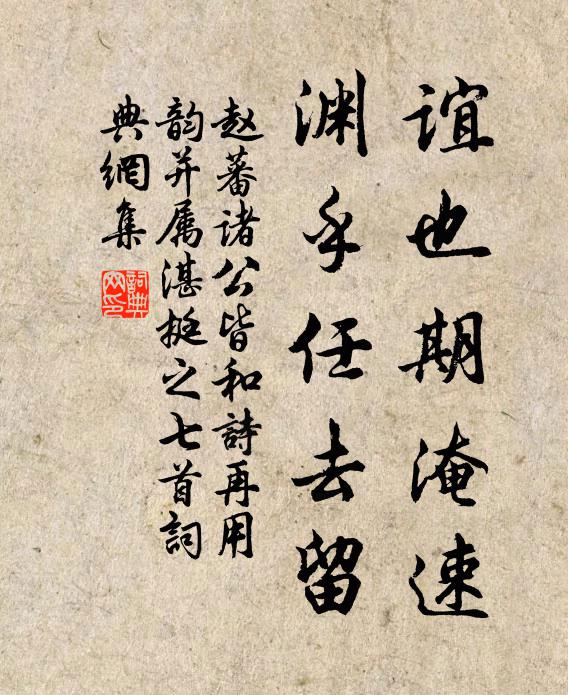 誼也期淹速
渊乎任去留
赵蕃诸公皆和詩再用
韵并属湛挺之七首詞
典網集
詞典
网印